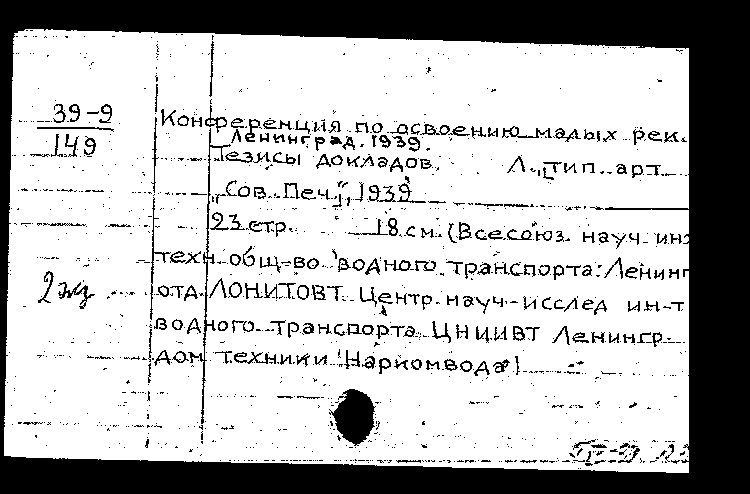 39-9
149
Конференция по освоению малых рек.
Ленинград. 1939.
Тезисы докладов. Л., тип. арт.
„Сов. Печ.", 1939
23 стр. 18 см. (Всесоюз. науч. инж
техн. общ-во водного транспорта. Ленингр
отд. ЛОНИТОВТ Центр. науч.-исслед. ин-т
2 экз водного транспорта ЦНИИВТ Ленингр.
дом техники Наркомвода)